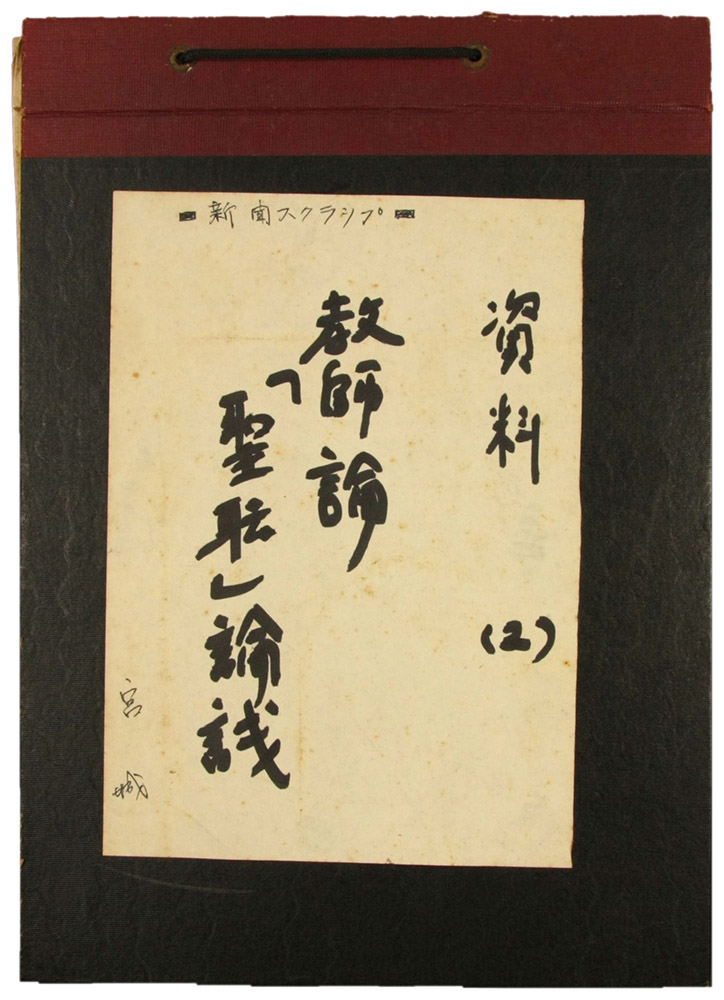 新聞スクラップ
資料 (2)
教師論
「聖耺」論議
宮城